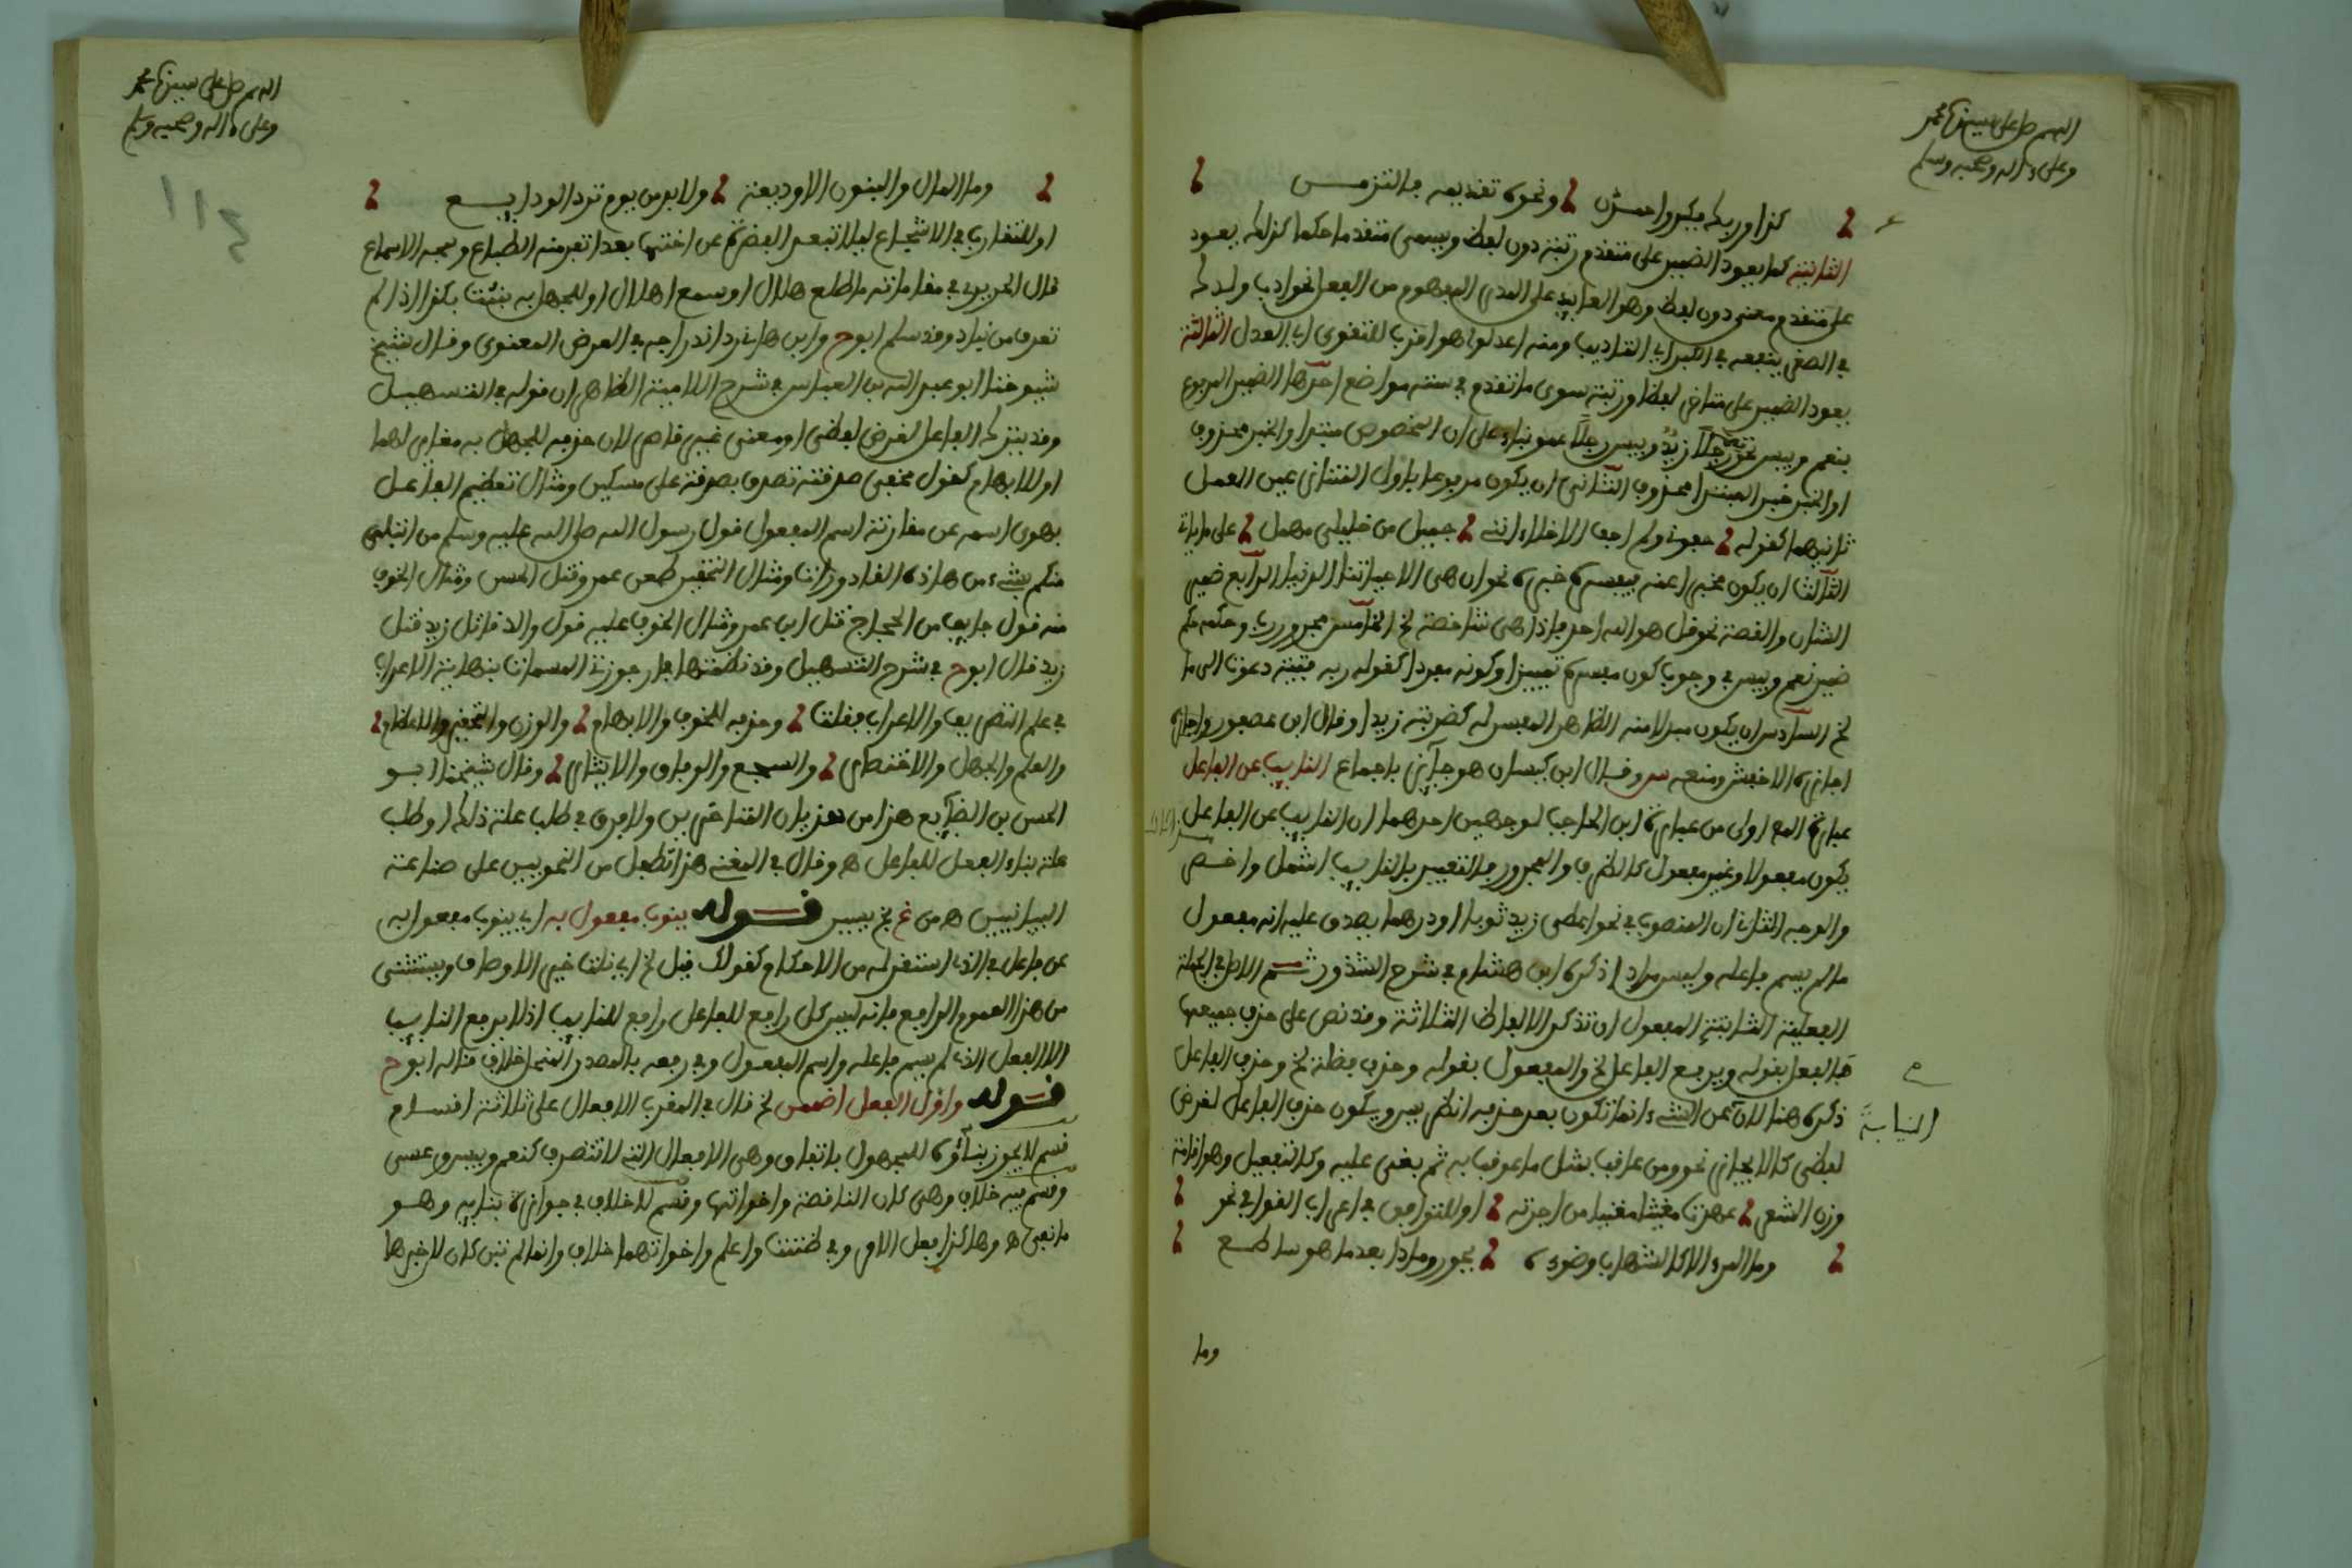 اللهم صل على سيدنا محمد
وعلى ءاله وصحبه وسلم
كذا وربك ميكروا حمزن ونحوه تقديمه فالتزمن
الثانية كما يعود الضمير على متقدم رتبة دون لفظ ويسمى متقدما حكما كذلك يعود
على متقدم معنى دون لفظ وهو العايد على المدى المفهوم من الفعل نحو ادب ولدك
في الصغر ينفعه في الكبر اي التاديب ومنه اعدلوا هو اقرب للتقوى اي العدل الثالثة
يعود الضمير على متاخر لفظا ورتبة سوى ما تقدم في ستة مواضع احدها الضمير المرفوع
بنعم وبيس نحو نعم رجلا زيد وبيس رجلا عمرو بناء على ان المخصوص مبتدا والخبر محذوف
او الخبر خبر المبتدا محذوف الثاني ان يكون مرفوعا باول المتنازعين العمل
ثانيهما كقوله جفوني ولم اجف الاخلاء انني جميل من خليلي مهمل على ما ياتي
الثالث ان يكون مخبرا عنه فيفسره خبره نحو ان هي الا حياتنا الدنيا الرابع ضمير
الشان والقصة نحو قل هو الله احد فاذا هي شاخصة لخ الخامس مجرور رب وحكمه حكم
ضمير نعم وبيس في وجوب كون مفسره تمييزا وكونه مفردا كقوله ربه فتية دعوت الى ما
لخ السادس ان يكون مبدلا منه الظاهر المفسر له كضربته زيدا وقال ابن عصفور واجازه
اجازه الاخفش ومنعه س وقال ابن كيسان هو جايز باجماع النايب عن الفاعل
عبارة المص اولى من عبارة ابن الحاجب لوجهين احدهما ان النايب عن الفاعل
يكون مفعولا وغير مفعول كالظرف والمجرور فالتعبير بالنايب اشمل واخص
والوجه الثاني ان المنصوب في نحو اعطي زيد ثوبا او درهما يصدق عليه انه مفعول
ما لم يسم فاعله وليس مرادا ذكره ابن هشام في شرح الشذور ثم الاصل في الجملة
الفعلية الثابتة المفعول ان تذكر الالفاظ الثلاثة وقد نص على حذف جميعها
فالفعل بقوله ويرفع الفاعل لخ والمفعول بقوله وحذف فضلة لخ وحذف الفاعل
ذكره هنا لان عن الشيء انما تكون بعد حذفه انظر يس ويكون حذف الفاعل لغرض
النيابة
لفظي كالايجاز نحو ومن عاقب بمثل ما عوقب به ثم بغي عليه وكالتفعيل وهو اقامة
وزن الشعر عهدت مغيثا مغنيا من اجرته او للتوافق في اعراب القوافي نحو
وما المرء الا كالشهاب وضوءه يحور رمادا بعد ما هو ساطع
وما
اللهم صل على سيدنا محمد
وعلى ءاله وصحبه وسلم
وما المال والبنون الا وديعة ولا بد من يوم ترد الودايع
او للتقارب في الاسجاع ليلا تبعد الفقرة عن اختها بعدا تعرفه الطباع وتمجه الاسماع
قال الحريري في مقاماته ما طلع هلال او سمع اهلال او للجهل به نبئت بكذا اذا لم
تعرف من نباك وقد سلم ابوح وابن هانئ رد اندراجه في الغرض المعنوي وقال شيخ
شيوخنا ابو عبد الله بن العباس في شرح اللامية الظاهر ان قوله في التسهيل
وقد يترك الفاعل لغرض لفظي او معنوي غير قاصر لان حذفه للجهل به مغاير لهما
او للابهام كقول مخفي صدقته تصدق بصدقة على مسكين ومثال تعظيم الفاعل
بصون اسمه عن مقارنة اسم المفعول قول رسول الله صلى الله عليه وسلم من ابتلي
منكم بشيء من هاذه القاذورات ومثال التحقير طعن عمر وقتل الحسن ومثال الخوف
منه قول خايف من الحجاج قتل ابن عمر ومثال الخوف عليه قول والد قاتل زيد قتل
زيد قال ابوح في شرح التسهيل وقد نظمتها في ارجوزتي المسماة بنهاية الاعراب
في علم التصريف والاعراب فقلت وحذفه للخوف والابهام والوزن والتحقير والاعظام
والعلم والجهل والاختصار والسجع والوفاق والايثار وقال شيخنا ابو
الحسن بن الضايع هذا من هذيان المتاخرين ولا فرق في طلب علة ذلك او طلب
علة بناء الفعل للفاعل ه وقال في المغني هذا تطفل من النحويين على صناعة
البيانيين ه من خ لخ يس قوله ينوب مفعول به اي ينوب مفعول به
عن فاعل في الذي استقر له من الاحكام كقولك قيل لخ اي نلت خير الاوصاف ويستثنى
من هذا العموم الرافع فانه ليس كل رافع للفاعل رافع للنايب اذ لا يرفع النايب
الا الفعل الذي لم يسم فاعله واسم المفعول وفي رفعه بالمصدر المنحل خلاف قاله ابوح
قوله واول الفعل اضممن لخ قال في المقرب الافعال على ثلاثة اقسام
قسم لا يجوز بناؤه للمجهول باتفاق وهي الافعال التي لا تتصرف كنعم وبيس وعسى
وقسم فيه خلاف وهي كان الناقصة واخواتها وقسم لا خلاف في جواز بنايه وهو
ما بقي ه وهاكذا فعل الامر وفي ظننت واعلم واخواتهما خلاف وانما لم تبن كان لاخبرها